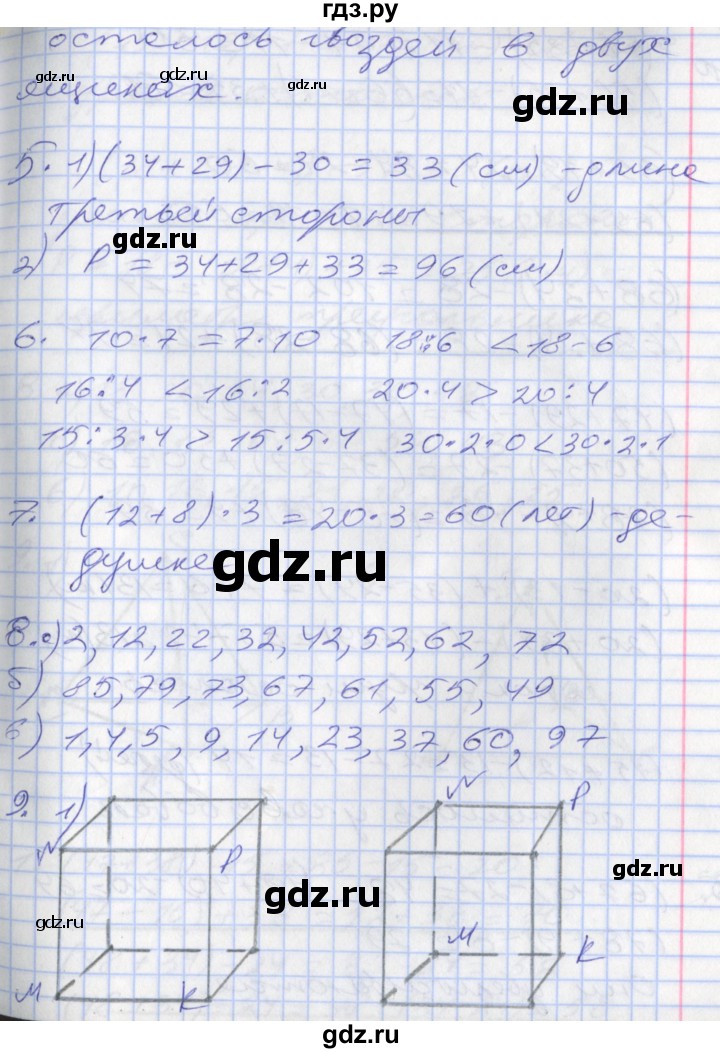 гдз.ру
осталось гвоздей в двух
ящиках.
gdz.ru gdz.ru
gdz.ru
5. 1) (34+29) - 30 = 33 (см) - длина
gdz.ru gdz.ru
третьей стороны.
gdz.ru
2) P = 34+29+33 = 96 (см)
6. 10·7 = 7·10 18:6 < 18-6
gdz.ru gdz.ru
16:4 < 16:2 20·4 > 20:4
15:3·4 > 15:5·4 30·2·0 < 30·2·1
gdz.ru
7. (12+8)·3 = 20·3 = 60 (лет) - де-
душке
gdz.ru
8. а) 2, 12, 22, 32, 42, 52, 62, 72
gdz.ru gdz.ru
б) 85, 79, 73, 67, 61, 55, 49
в) 1, 4, 5, 9, 14, 23, 37, 60, 97
gdz.ru
9. 1)
N P
N P
gdz.ru
gdz.ru gdz.ru
M K
M K
gdz.ru
гдз.ру